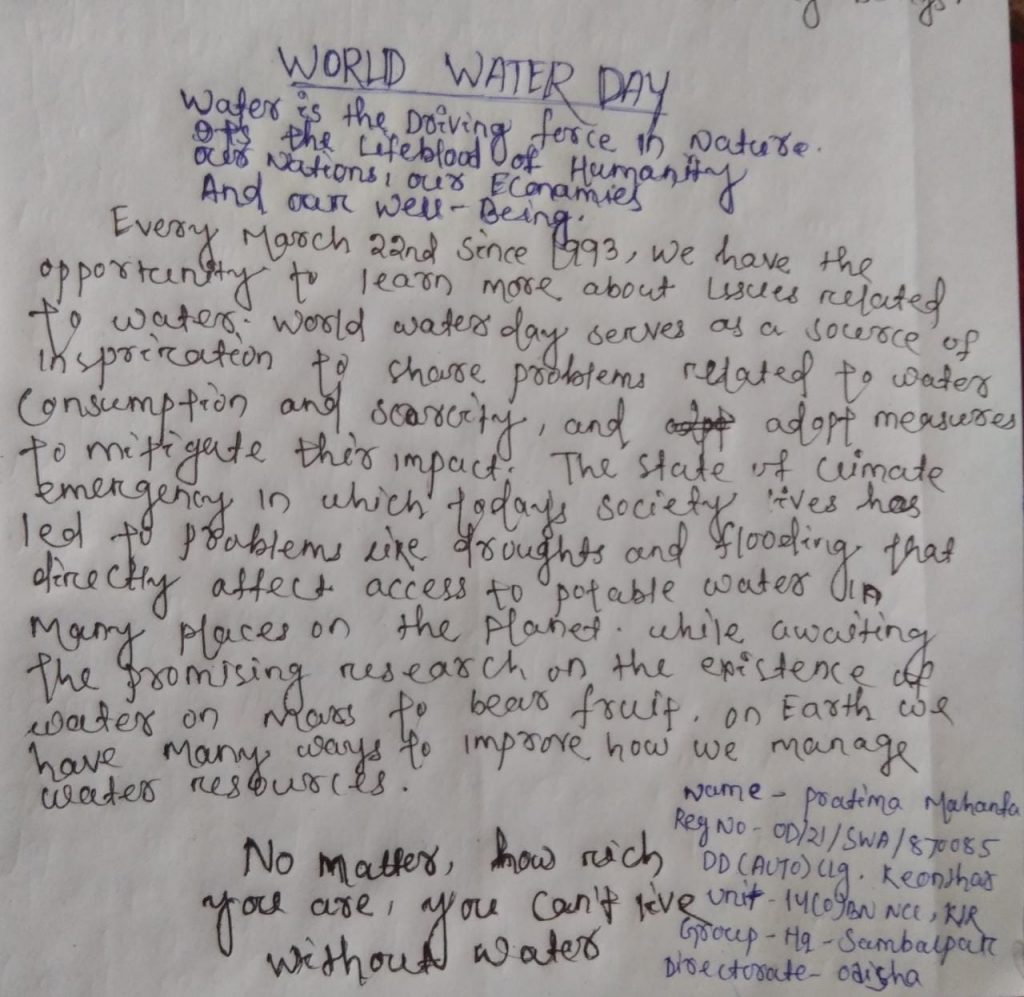 WORLD WATER DAY
Water is the Driving force in Nature.
Its the Lifeblood of Humanity
our Nations, our Econamies
And our Well-Being.
Every March 22nd Since 1993, we have the
opportunity to learn more about issues related
to water. World water day serves as a source of
inspriration to share problems related to water
Consumption and scarcity, and adopt measures
to mitigate their impact. The state of climate
emergency in which today's society lives has
led to problems like droughts and flooding that
directly affect access to potable water in
Many places on the planet. while awaiting
the promising research on the existence of
water on Mars to bear fruit. on Earth we
have many ways to improve how we manage
water resources.
No matter, how rich
you are, you can't live
without water
Name - Pratima Mahanta
Reg No - OD/21/SWA/870085
DD (AUTO) Clg. Keonjhar
Unit - 14(O)BN NCC, KJR
Group - Hq - Sambalpur
Directorate - Odisha